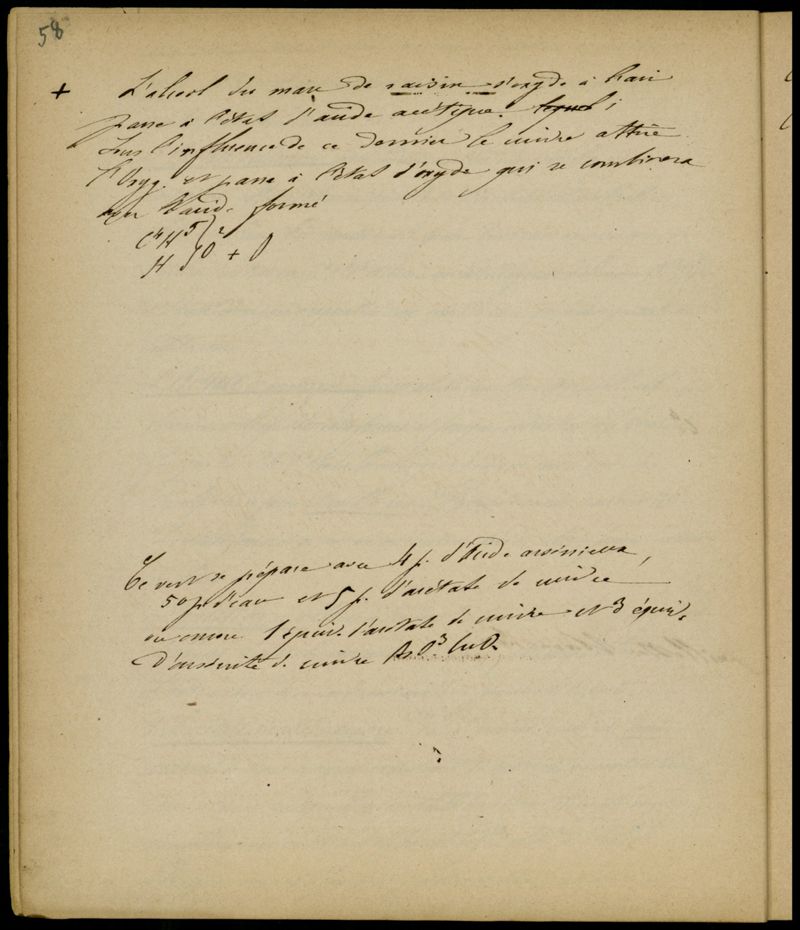 58
+ L'alcool du marc de raisin s'oxyde à l'air
passe à l'état d'acide acétique.
sous l'influence de ce dernier le cuivre attire
l'Oxyg. et passe à l'état d'oxyde qui se combinera
avec l'acide formé
C4H5 } O2 + O
H
Ce vert se prépare avec 4 p. d'Acide arsénieux,
50 p d'eau et 5 p. d'acétate de cuivre
ou encore 1 équiv. d'acétate de cuivre et 3 équiv.
d'arsénite de cuivre As O3 CuO.